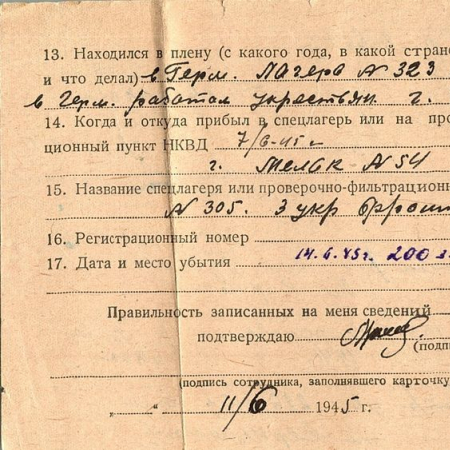 13. Находился в плену (с какого года, в какой стране
и что делал) в Герм. Лагерь № 323
в Герм. работал у крестьян. г.
14. Когда и откуда прибыл в спецлагерь или на про
ционный пункт НКВД 7/6-45 г
г. Мельк № 54
15. Название спецлагеря или проверочно-фильтрацион
№ 305. 3 укр фронт
16. Регистрационный номер
17. Дата и место убытия 14.6.45г. 200
Правильность записанных на меня сведений
подтверждаю
(подп
(подпись сотрудника, заполнявшего карточку
„ “ 11/6 1945 г.